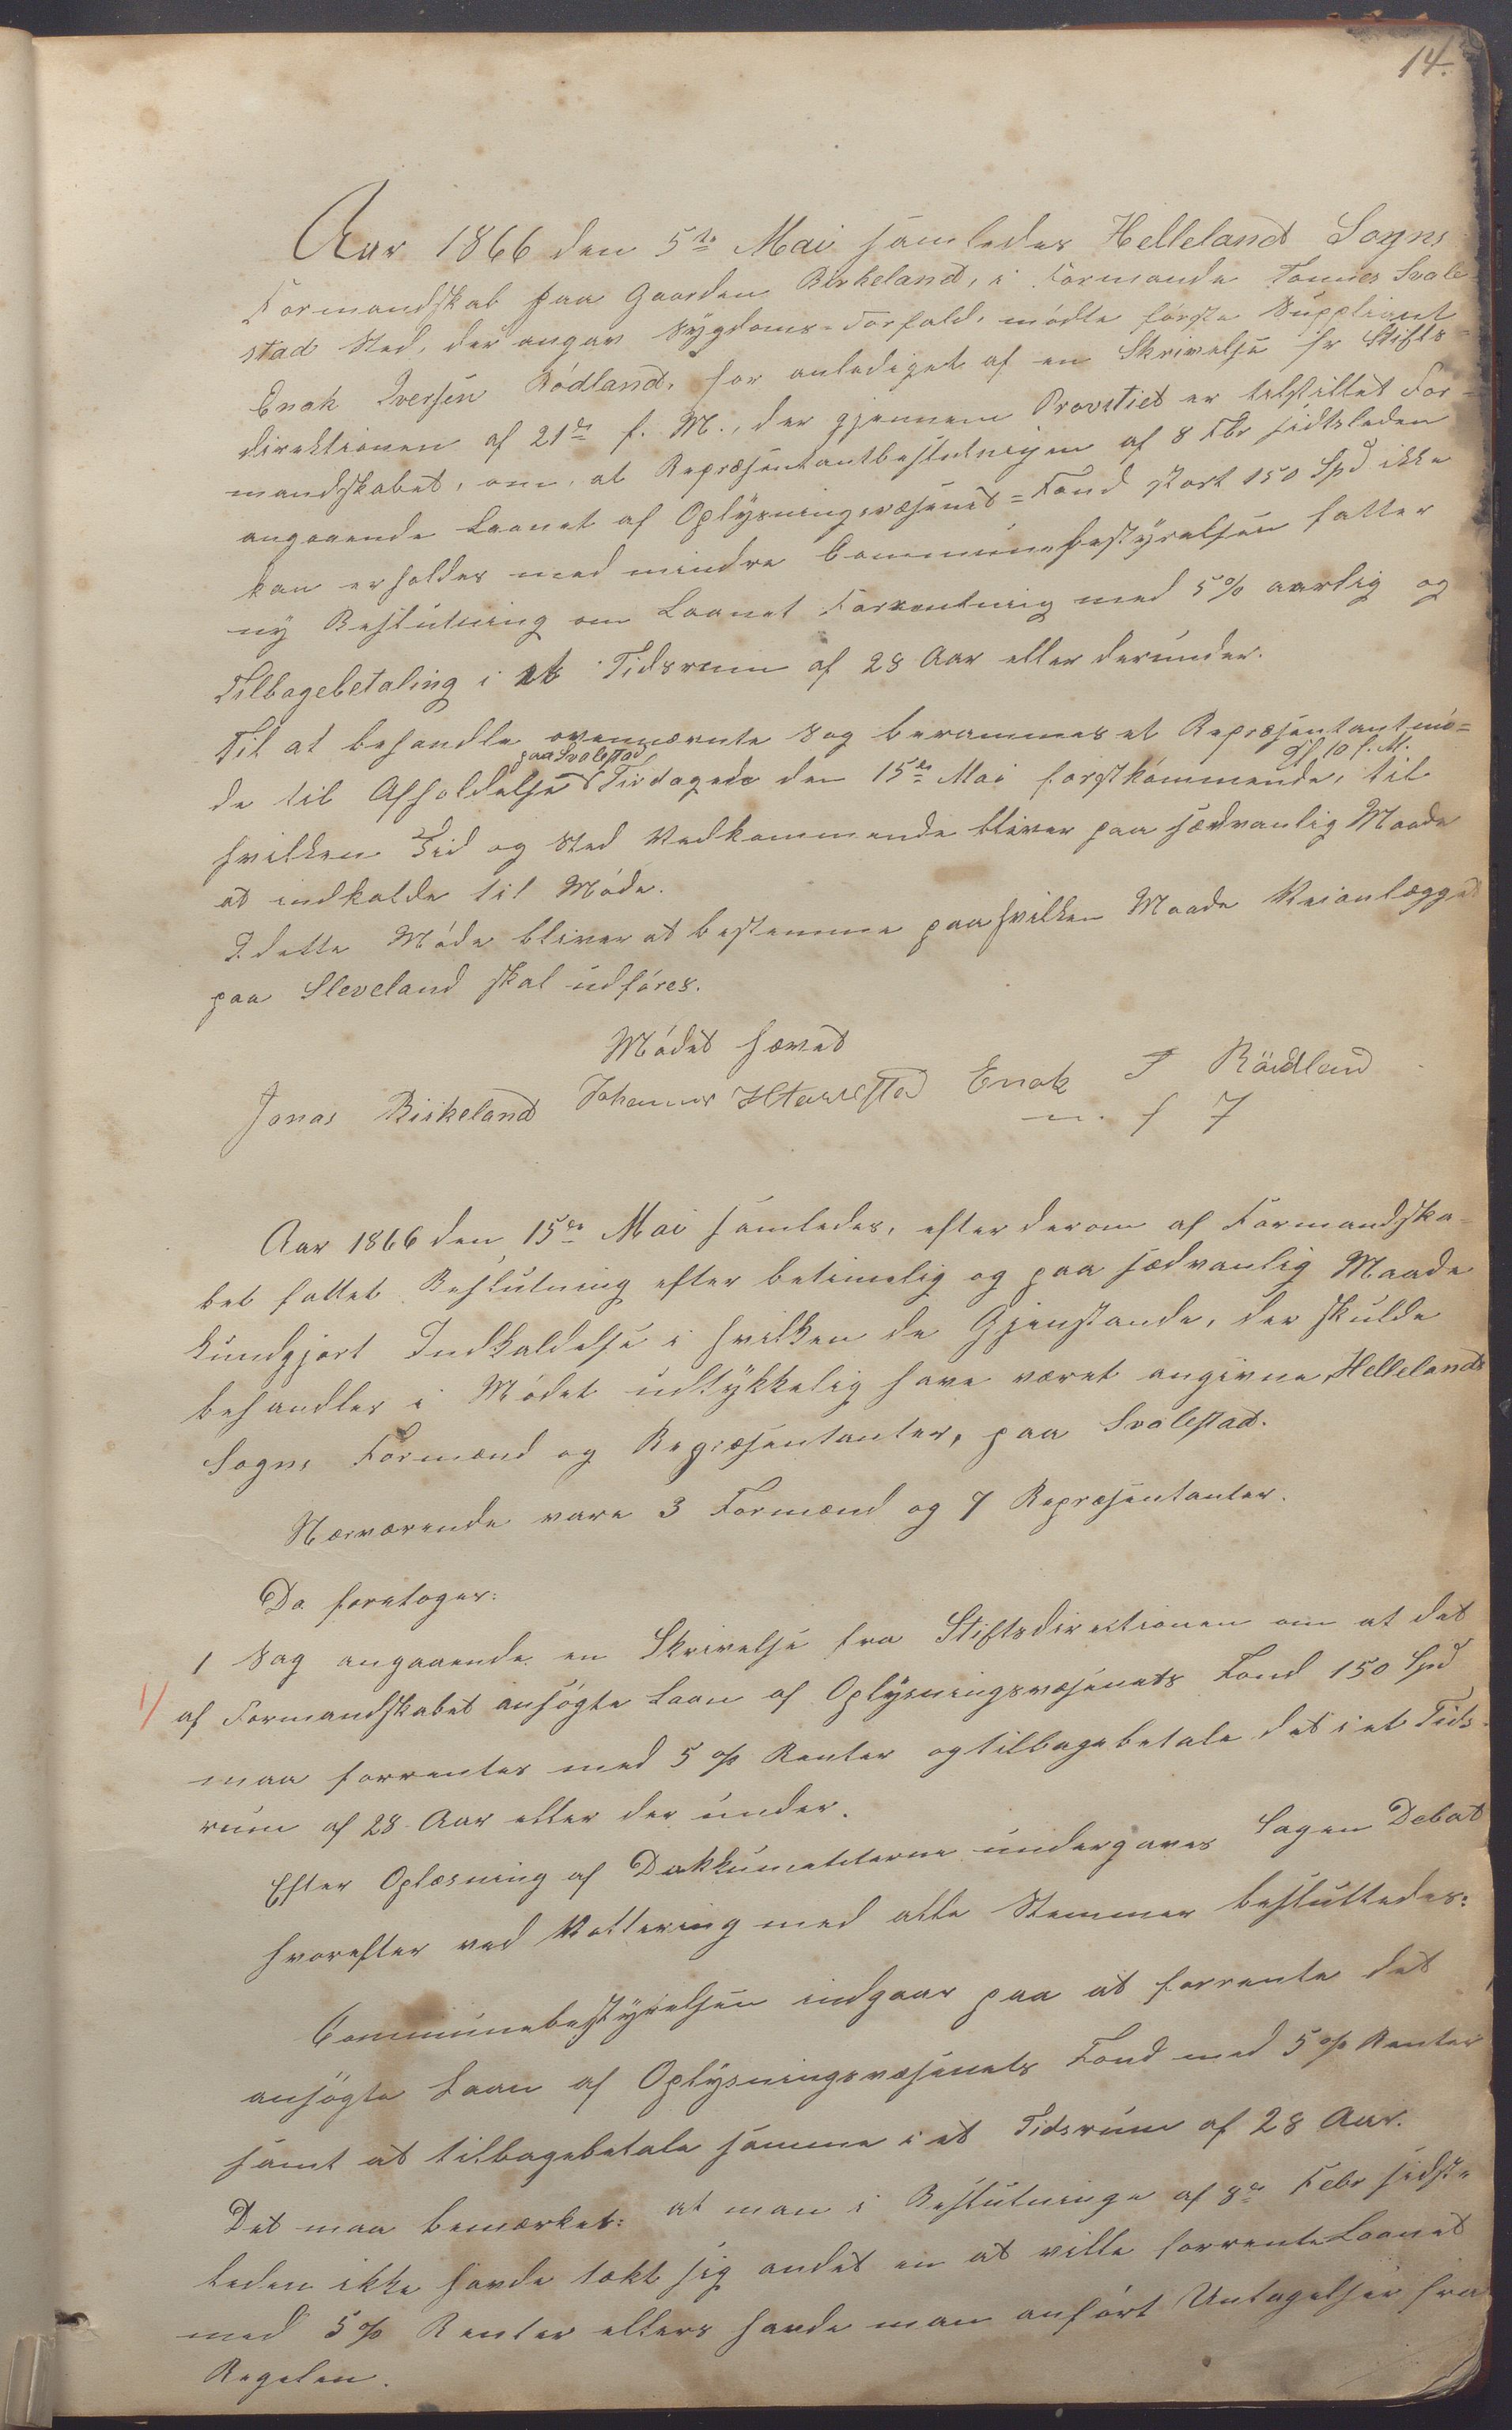 14.
Aar 1866 den 5te Mai samledes Helleland Sogns
Formandskab paa Gaarden Birkeland, i Formands Tonnes Svale-
stad Sted, der angav Sygdoms-Forfald, mødte første Suppliant
Enok Iversen Rödland, for anlediget af en Skrivelse fr Stifts-
direktionen af 21de f. M., der gjennem Provstiet er tilstillet For-
mandskabet, om, at Repræsentantbeslutnigen af 8 Fbr sidtsleden
angaaende Laanet af Oplysningsvæsenets-Fond stort 150 Spd ikke
kan erholdes med mindre Communebestyrelsen fatter
ny Beslutning om Laanet Forrentnig med 5 % aarlig og
Tilbagebetaling i et Tidsrum af 28 Aar eller derunder.
Til at behandle ovennævnte Sag berammes et Repræsentantmö-
paa Svalestad Kl 10 f. M.
de til Afholdelse Tirdagede den 15de Mai forstkommende, til
hvilken Tid og Sted Vedkommende bliver paa sædvanlig Maade
at indkalde til Møde.
I dette Møde bliver at bestemme paa hvilken Maade Veianlægget
paa Sleveland skal udføres.
Mødet hævet
Jonas Birkeland Johannes Enok I Röidland
m. f 7
Aar 1866 den 15de Mai samledes, efter derom af Formandska-
bet fattet Beslutning efter betimelig og paa sædvanlig Maade
kundgjort Indkaldelse i hvilken de Gjenstande, der skulde
behandles i Mødet udtykkelig have været angivne, Hellelands
Sogns Formænd og Repræsentanter, paa Svalestad.
Nærværende vare 3 Formænd og 7 Repræsentanter.
Da foretoges:
1 Sag angaaende en Skrivelse fra Stiftsdirectionen om at det
1/ af Formandskabet ansøgte Laan af Oplysningsvæsenets Fond 150 Spd
maa forrentes med 5 % Renter og tilbagebetale det i et Tids-
rum af 28 Aar eller der under.
Efter Oplæsning af Dokkumenterne undergaves Sagen Debat
hvorefter ved Vottering med alle Stemmer besluttedes:
Communebestyrelsen indgaar paa at forrente det
ansøgte Laan af Oplysningsvæsenets Fond med 5 % Renter
samt at tilbagebetale samme i et Tidsrum af 28 Aar.
Det maa bemærkes: at man i Beslutninge af 8de Febr sidst-
leden ikke havde tækt sig andet en at ville forrente Laanet
med 5 % Renter ellers havde man anført Untagelser fra
Regelen.